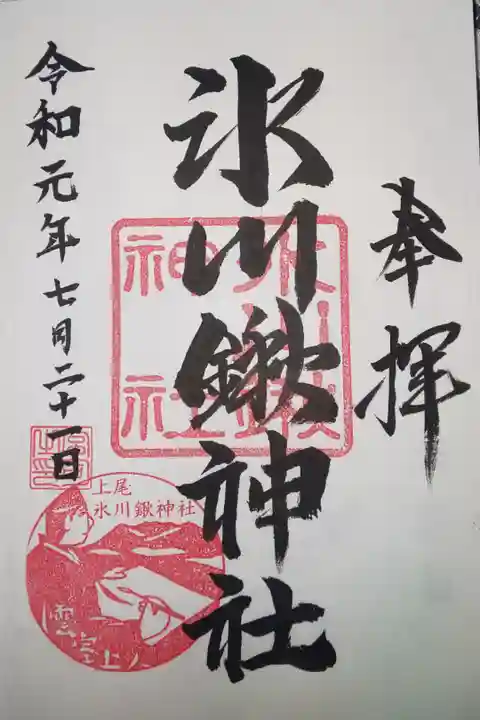 奉拝
氷川鍬神社
令和元年七月二十一日
氷川鍬
神社
上尾
氷川鍬神社
雲室上人